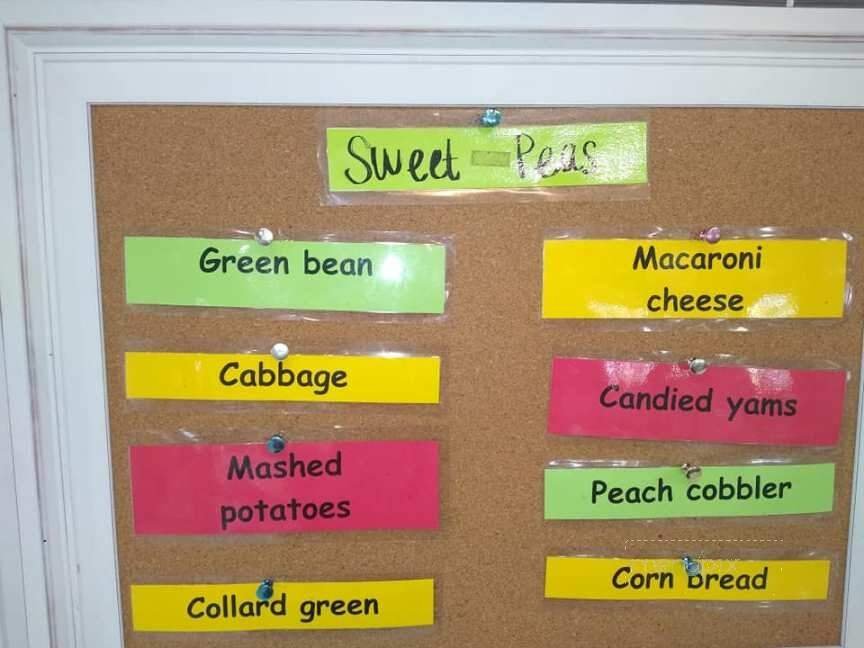 Sweet - Peas
Green bean
Cabbage
Mashed
potatoes
Collard green
Macaroni
cheese
Candied yams
Peach cobbler
Corn bread